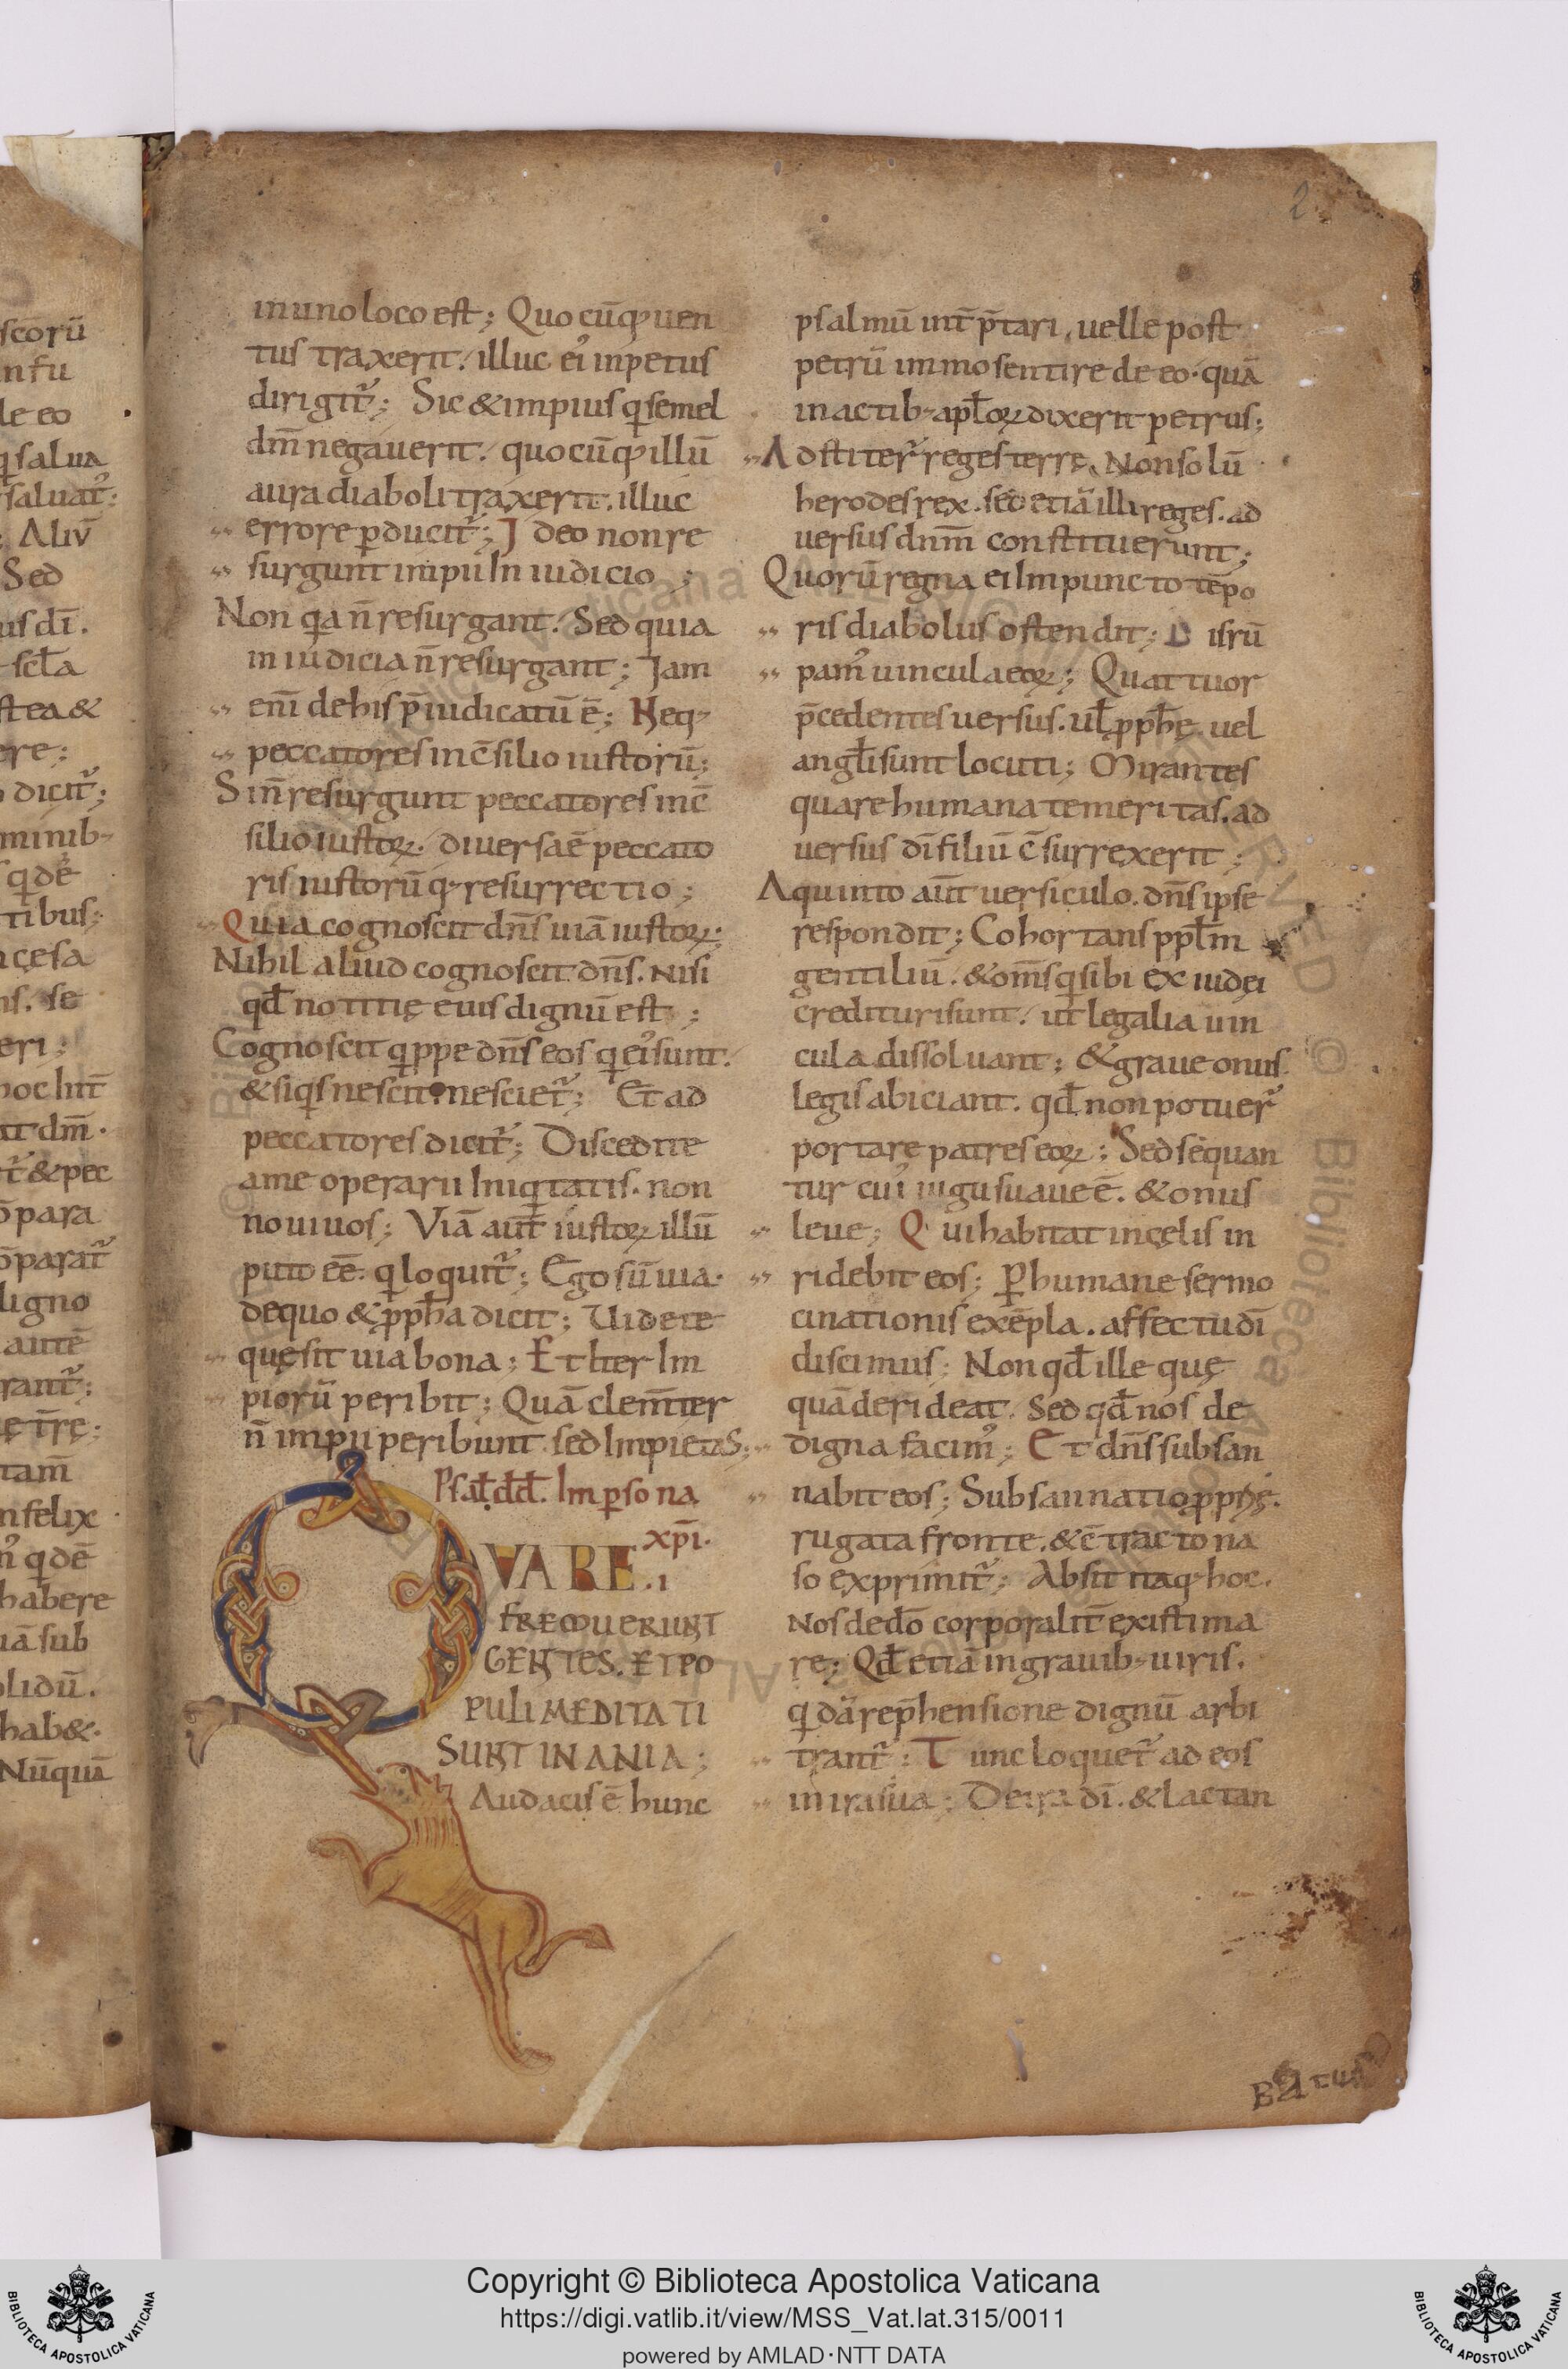 2
in uno loco est; Quocūq; uen
tus traxerit. illuc ei᾽ inpetus
dirigit᷑; Sic & impius q semel
dm̄ negauerit. quocūq; illū
aura diaboli traxerit. illuc
errore ꝑducit᷑; Ideo non re
surgunt impii In iudicio;
Non qa n̄ resurgant. Sed quia
in iudicia n̄ resurgant; Iam
eni̅ de his p̄iudicatū ē; Neq;
peccatores in c̄silio iustorū;
Si n̄ resurgunt peccatores in c̄
silio iustoꝝ. diuersa ē peccato
ris iustorū q; resurrectio;
Quia cognoscit dn̄s uiā iustoꝝ;
Nihil aliud cognoscit dn̄s. nisi
qđ notitię eius dignū est;
Cognoscit qppe dn̄s eos q ei᾽ sunt.
& siqs nescit. nesciet᷑; Et ad
peccatores dicit᷑; Discedite
a me operarii Iniqtatis. non
noui uos; Viā aut̄ iustoꝝ illū
puto eē. q loquit᷑; Ego sū uia.
de quo & ꝓph̄a dicit; Uidete
quę sit uia bona; Et Iter Im
piorū peribit; Quā clem̄ter
n̄ impii peribunt sed Impietas;
Psał. dd̄. Im ꝑsona
xp̄i.
QVARE .i
FREMUERUNT
GENTES. ET PO
PULI MEDITATI
SUNT INANIA;
Audacis ē hunc
psalmū int̄p̄tari. uelle post
petrū immo sentire de eo. quā
in actib; apłoꝝ dixerit petrus;
Adstiter᷑ reges terrę. Non solū
herodes rex. sed etiā illi reges. ad
uersus dnm̄ constituerunt;
Quorū regna ei Im puncto tēpo
ris diabolus ostendit; Disrū
pam᾽ uincula eoꝝ; Quattuor
p̄cedentes uersus. uł ꝓph̄ę. uel
angłi sunt locuti; Mirantes
quare humana temeritas. ad
uersus dī filiū c̄surrexerit;
A quinto aut̄ uersiculo. dn̄s ipse
respondit; Cohortans ppłm
gentiliū. & om̄s q sibi ex iudęi
credituri sunt. ut legalia uin
cula dissoluant; & graue onus
legis abiciant. qđ non potuer᷑
portare patres eoꝝ; Sed sequan
tur cui᾽ iugū suaue ē. & onus
leue; Qui habitat in cęlis in
ridebit eos; Ꝑ humane sermo
cinationis exēpla. affectū dī
discimus; Non qđ ille que
quā derideat. Sed qđ nos de
digna facim᾽; Et dn̄s subsan
nabit eos; Subsannatio ꝓpͥę.
rugata fronte. & c̄tracto na
so exprimit᷑; Absit itaq; hoc.
Nos de dō corporalit̄ existima
re; Qđ etiā in grauib; uiris.
qdā rep̄hensione dignū arbi
trant᷑; Tunc loquet᷑ ad eos
in ira sua; De ira dī. & lactan
Batus
Copyright © Biblioteca Apostolica Vaticana
https://digi.vatlib.it/view/MSS_Vat.lat.315/0011
powered by AMLAD·NTT DATA
BIBLIOTECA APOSTOLICA VATICANA
BIBLIOTECA APOSTOLICA VATICANA